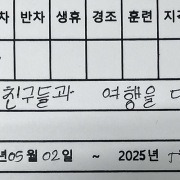 차 반차 생휴 경조 훈련 지
친구들과 여행을
년 05월 02일 ~ 2025년